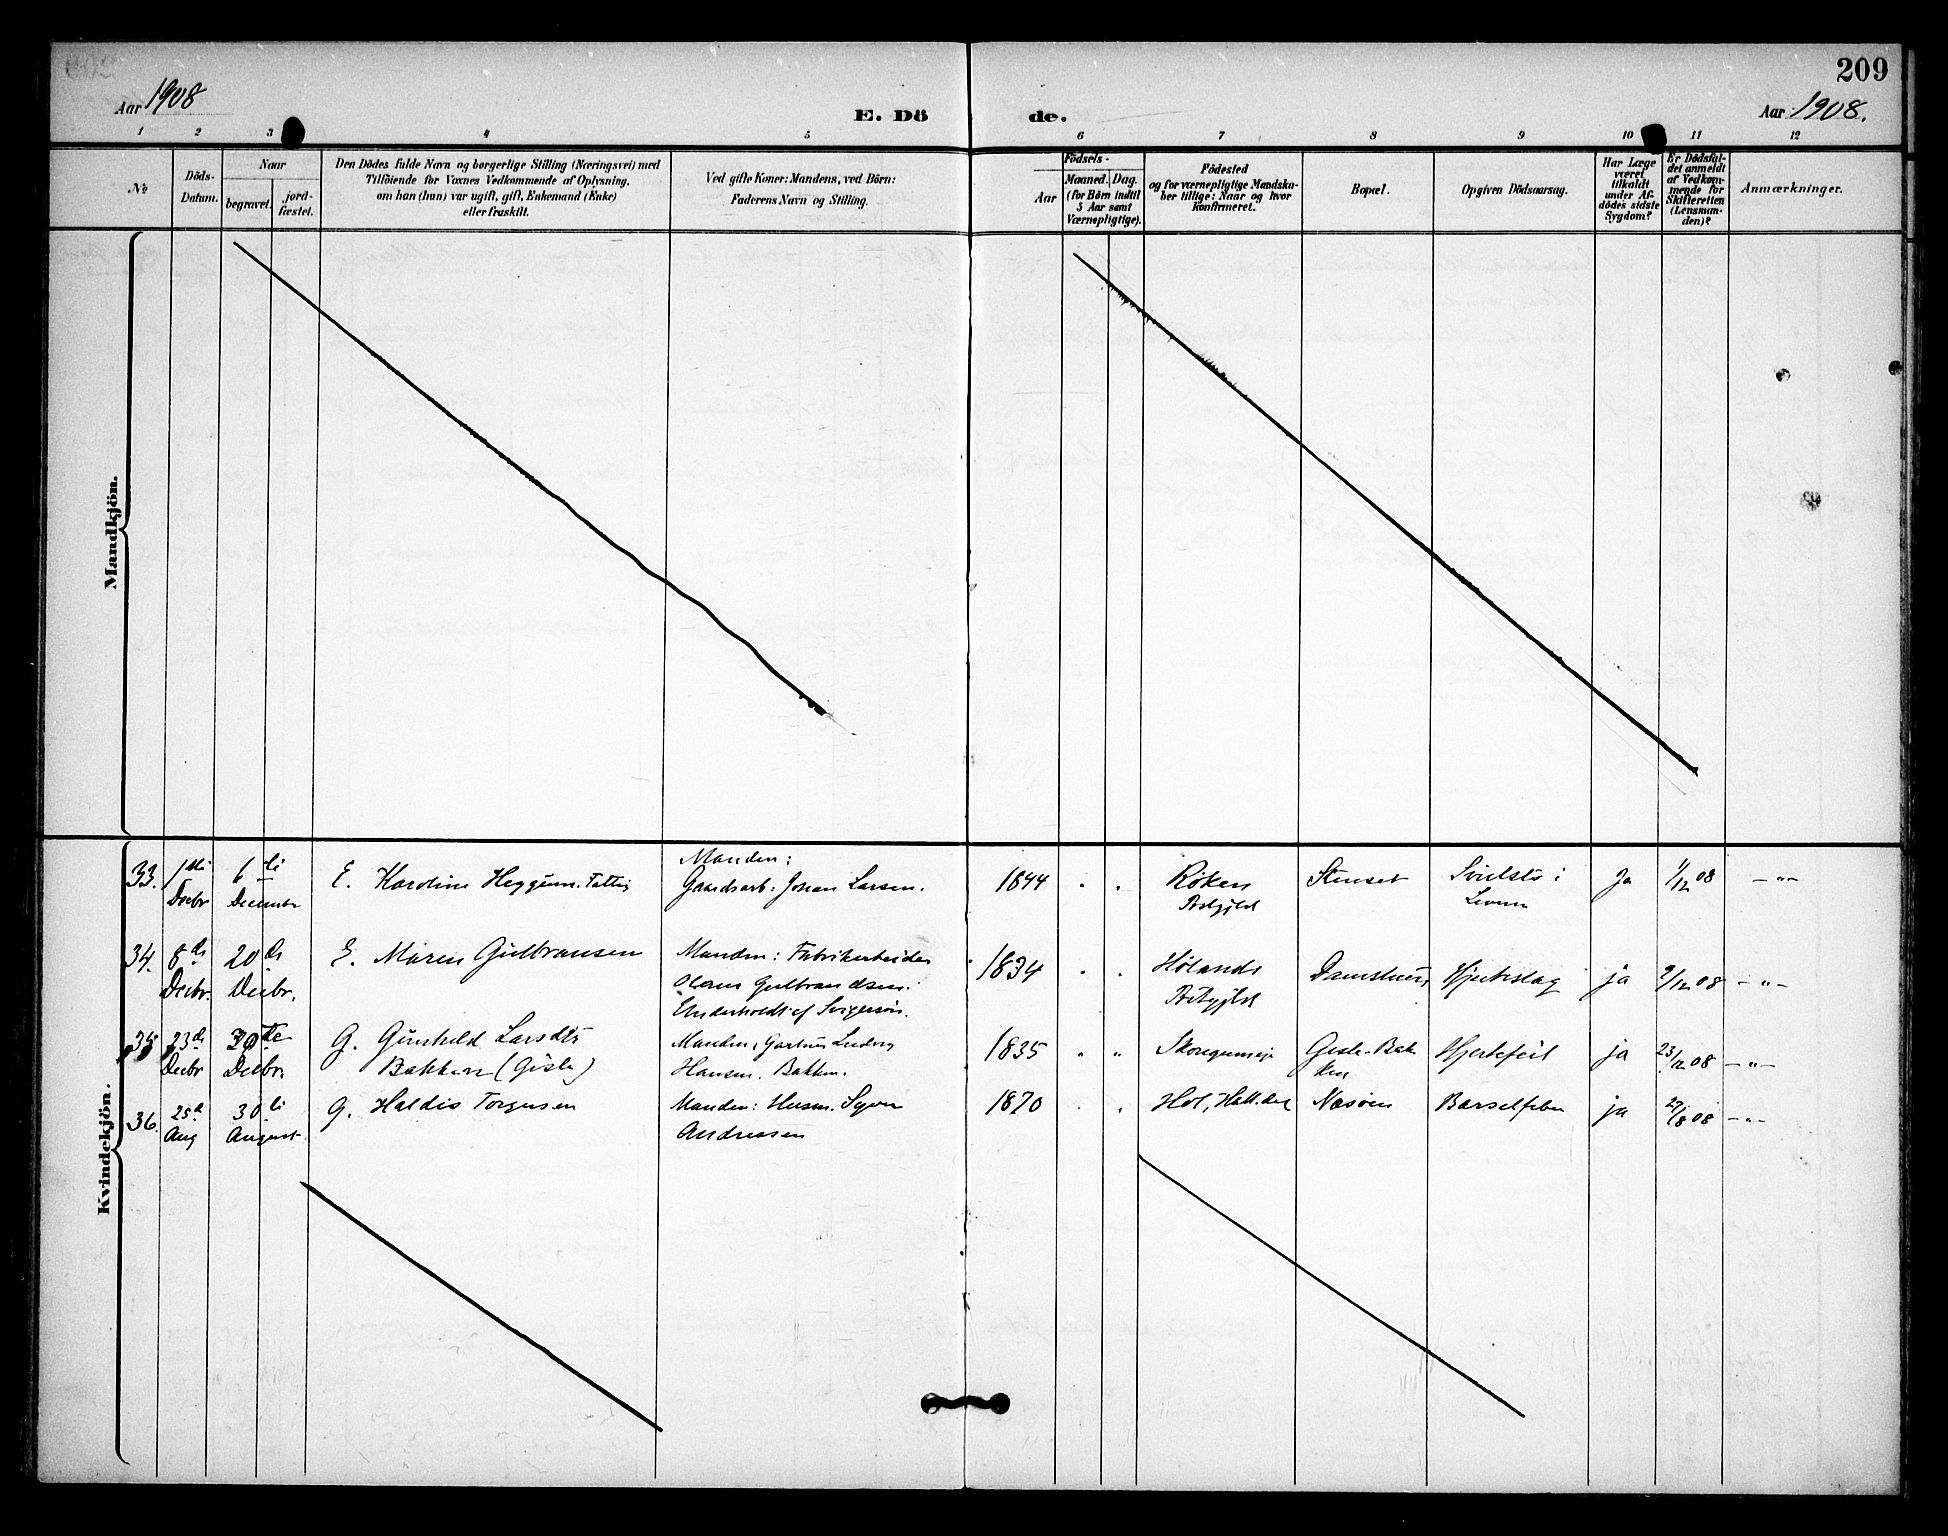 209
Aar 1908
E. Döde.
Aar 1908.
1 2 3 4 5 6 7 8 9 10 11 12
No
Döds-Datum.
Naar
begravet.
jord-fæstet.
Den Dödes fulde Navn og borgerlige Stilling (Næringsvei) med
Tilföiende for Voxnes Vedkommende af Oplysning,
om han (hun) var ugift, gift, Enkemand (Enke)
eller fraskilt.
Ved gifte Koner: Mandens, ved Börn:
Faderens Navn og Stilling.
Födsels-
Aar
Maaned. Dag.
(for Börn indtil
5 Aar samt
Værnepligtige).
Födested
og for værnepligtige Mandska-
ber tillige: Naar og hvor
konfirmeret.
Bopæl.
Opgiven Dödsaarsag.
Har Læge
været
tilkaldt
under Af-
dödes sidste
Sygdom?
Er Dödsfal-
det anmeldt
af Vedkom-
mende for
Skifteretten
(Lensman-
den)?
Anmærkninger.
Mandkjön.
Kvindekjön.
33. 1ste Decbr 6te December E. Karoline Heggum. Manden: Gaardsarb. Johan Larsen. 1844 " " Röken Prstgjld Stenset i Leveren Ja 1/12 08 — " —
34. 8de Decbr. 20de Decbr. E. Maren Gulbransen Manden: Fabrikarbeider Gulbrandsen. Underholdt af Svigersön. 1834 " " Hölands Prstgjld Hjerteslag ja 9/12 08 — " —
35 23de Decbr 30te Decbr. G. Gunhild Larsdtr Bakken (Gisle) Manden, Gartner Ludvig Hansen Bakken. 1835 " " Gisle-Bakken Hjertefeil ja 23/12 08 — " —
36. 25de Aug 30te August G. Haldis Torgersen Manden: Husm. Syver Andreassen 1870 " " Hol, Hall.dal Næsöen Barselfeber ja 27/8 08 — " —